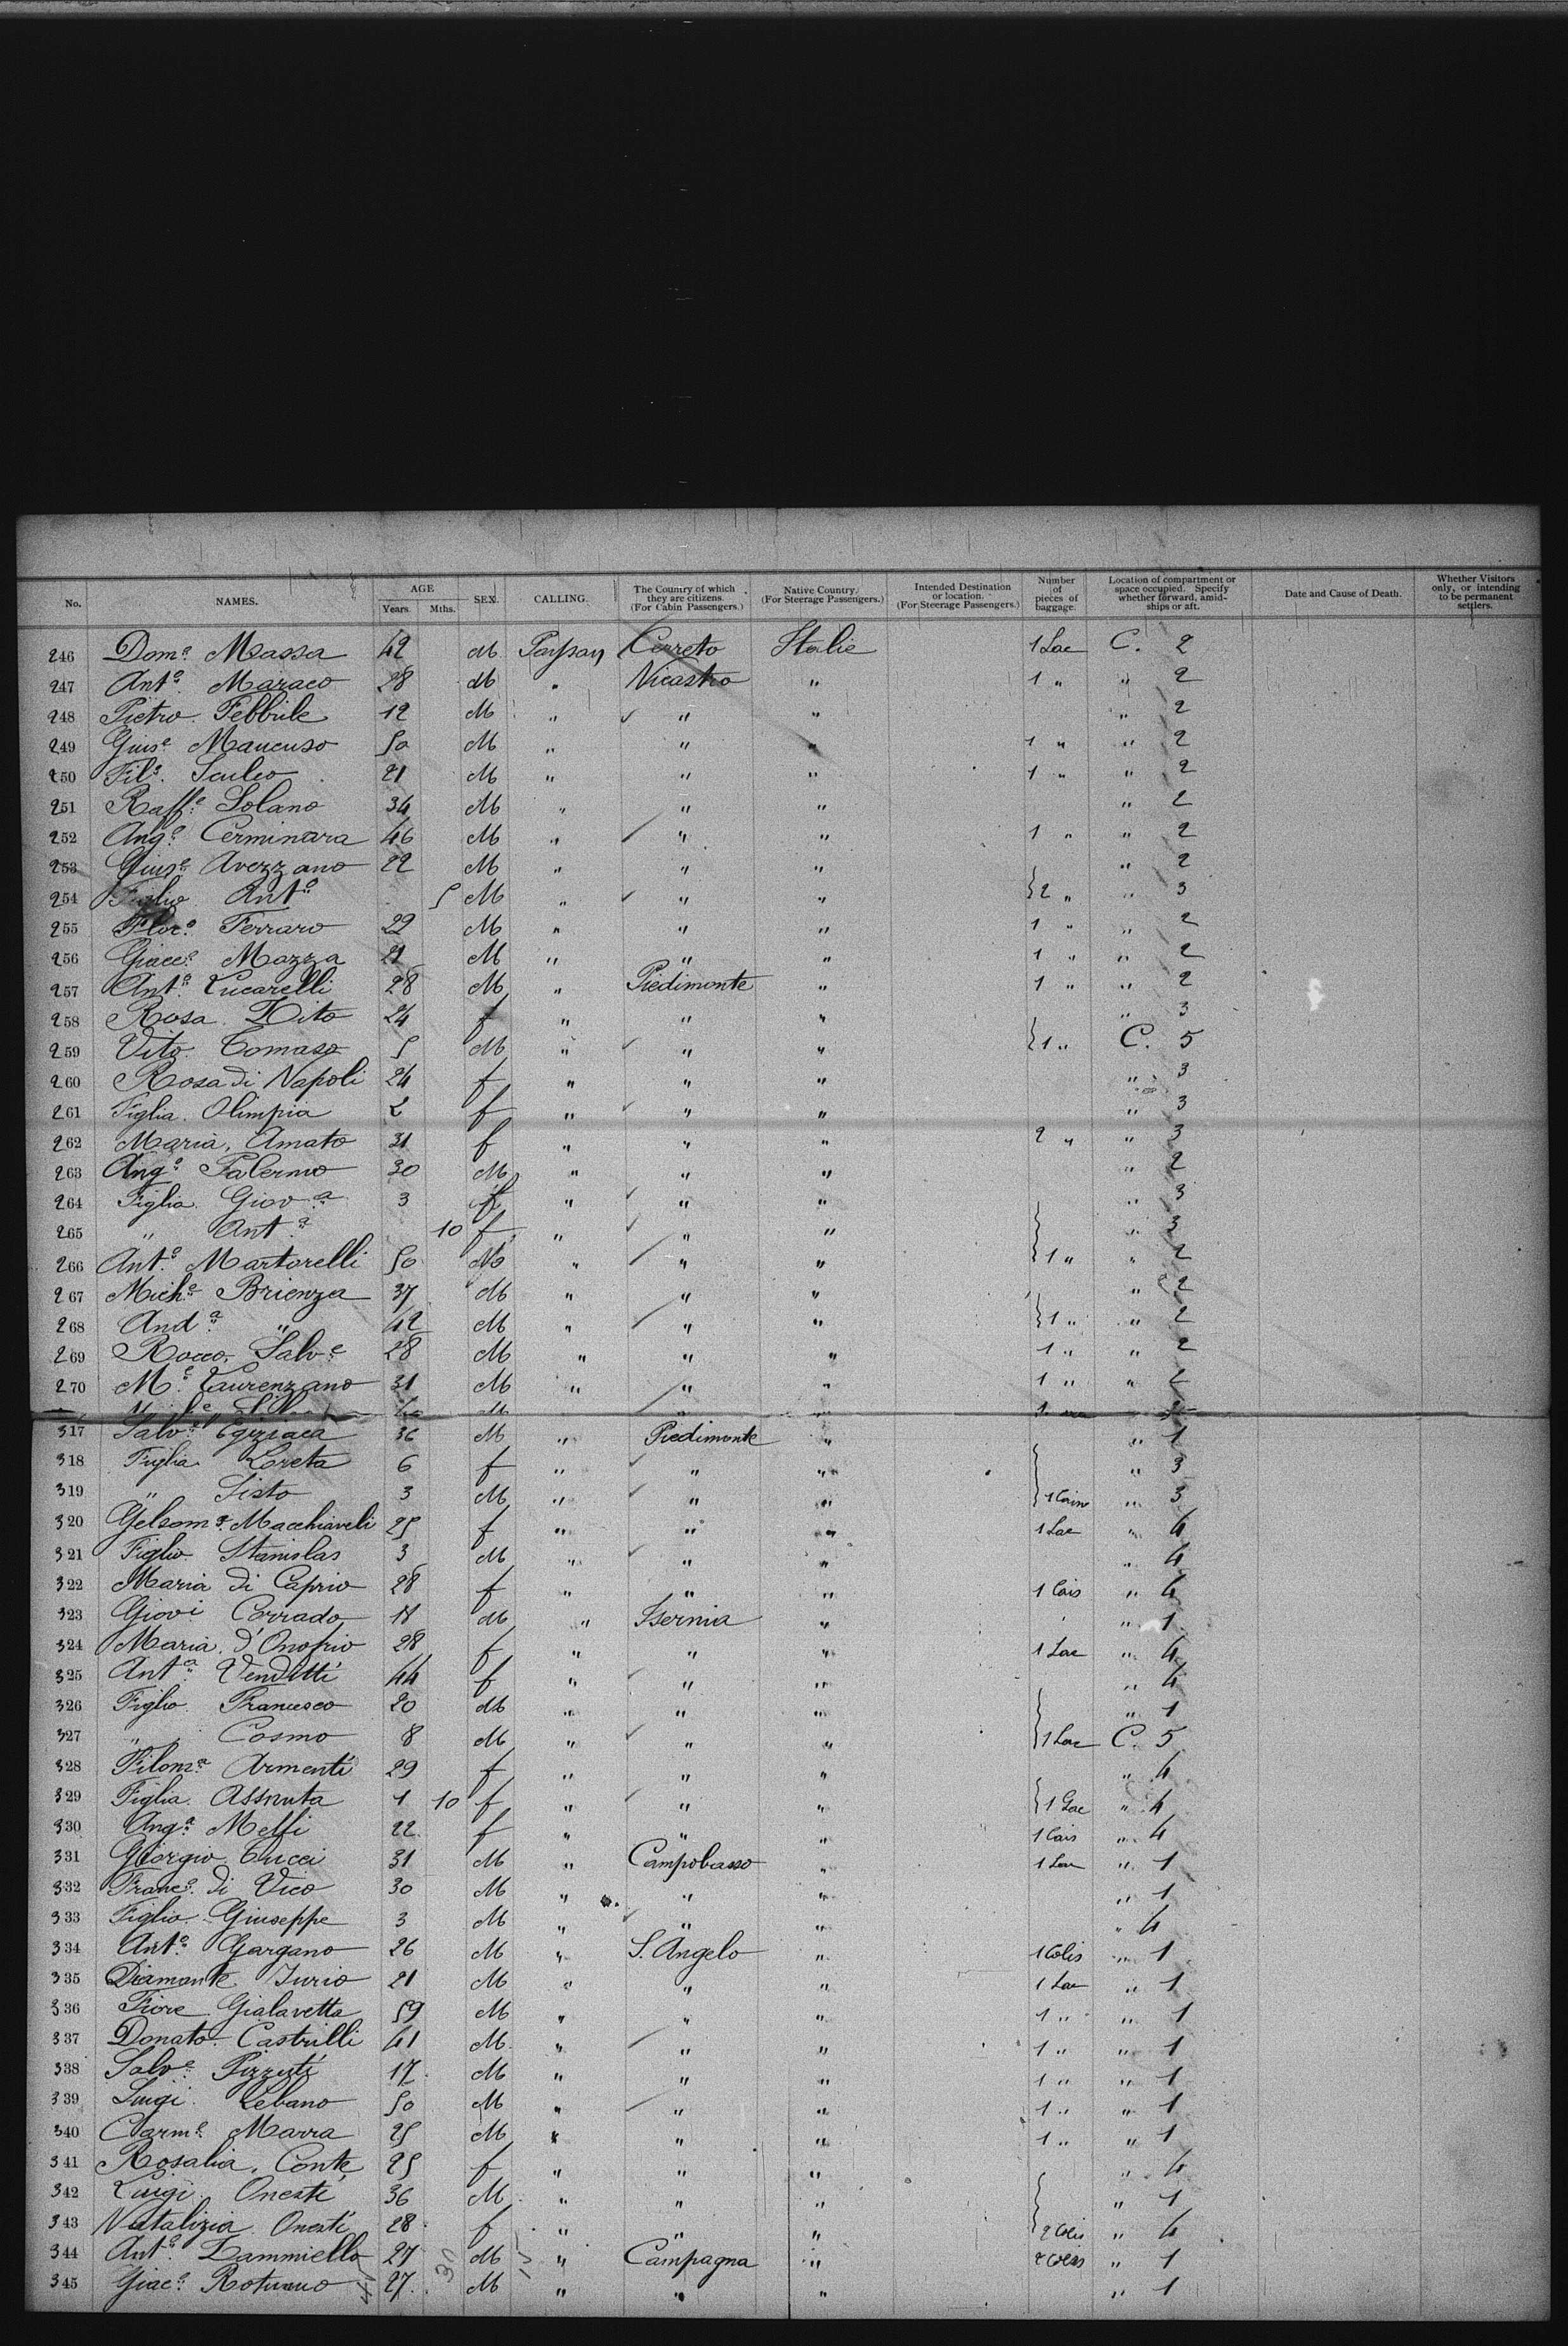 No. NAMES. AGE Years. Mths. SEX. CALLING. The Country of which they are citizens. (For Cabin Passengers.) Native Country. (For Steerage Passengers.) Intended Destination or location. (For Steerage Passengers.) Number of pieces of baggage. Location of compartment or space occupied. Specify whether forward, amidships or aft. Date and Cause of Death. Whether Visitors only, or intending to be permanent settlers.
246 Dom.º Massa 42 M Paysan Cerreto Italie 1 Sac C. 2
247 Ant.º Maraco 28 M " Nicastro " 1 " " 2
248 Pietro Febbile 12 M " " " " 2
249 Gius.e Mancuso 50 M " " " 1 " " 2
250 Fil.º Sculco 21 M " " " 1 " " 2
251 Raff.e Solano 34 M " " " " 2
252 Ang.º Cerminara 46 M " " " 1 " " 2
253 Gius.e Avezzano 22 M " " " " 2
254 Figlio Ant.º 5 M " " " 2 " " 3
255 Flor.º Ferraro 22 M " " " 1 " " 2
256 Giacc.º Mazza 21 M " " " 1 " " 2
257 Ant.º Lucarelli 28 M " Piedimonte " 1 " " 2
258 Rosa Zito 24 f " " " " 3
259 Vito Tomaso 5 M " " " 1 " C. 5
260 Rosa di Napoli 24 f " " " " 3
261 Figlia Olimpia 2 f " " " " 3
262 Maria Amato 31 f " " " 2 " " 3
263 Ang.º Palermo 30 M " " " " 2
264 Figlia Giov.a 3 f " " " " 3
265 " Ant.a 10 f " " " " 3
266 Ant.º Martorelli 50 M " " " 1 " " 2
267 Mich.e Brienza 37 M " " " " 2
268 And.a " 42 M " " " 1 " " 2
269 Rocco Salv.e 28 M " " " 1 " " 2
270 M.e Laurenzano 31 M " " " 1 " " 2
317 Salv.e Egiziaca 36 M " Piedimonte " " 1
318 Figlia Loreta 6 f " " " " 3
319 " Sisto 3 M " " " 1 " 3
320 Gelsom.a Macchiaveli 25 f " " " 1 Sac " 4
321 Figlio Stanislas 3 M " " " " 4
322 Maria di Caprio 28 f " " " 1 Cais " 4
323 Giovi Corrado 18 M " Isernia " " 1
324 Maria d'Onofrio 28 f " " " 1 Sac " 4
325 Ant.a Venditti 44 f " " " " 4
326 Figlio Francesco 20 M " " " " 1
327 " Cosmo 8 M " " " 1 Sac C. 5
328 Filom.a Armenti 29 f " " " " 4
329 Figlia Assunta 1 10 f " " " 1 Sac " 4
330 Ang.a Melfi 22 f " " " 1 Cais " 4
331 Giorgio Tucci 31 M " Campobasso " 1 Sac " 1
332 Franc.º di Vico 30 M " " " " 1
333 Figlio Giuseppe 3 M " " " " 4
334 Ant.º Gargano 26 M " S. Angelo " 1 Colis " 1
335 Diamante Iurio 21 M " " " 1 Sac " 1
336 Fiore Gialavetta 59 M " " " 1 " " 1
337 Donato Castrilli 41 M " " " 1 " " 1
338 Salv.e Pizzuti 17 M " " " 1 " " 1
339 Luigi Lebano 50 M " " " 1 " " 1
340 Carm.e Marra 25 M " " " 1 " " 1
341 Rosalia Conte 25 f " " " " 4
342 Luigi Onesti 36 M " " " " 1
343 Natalizia Onesti 28 f " " " 2 Colis " 4
344 Ant.º Zammiello 27 M " Campagna " 2 Colis " 1
345 Giac.º Rotunno 27 M " " " " 1